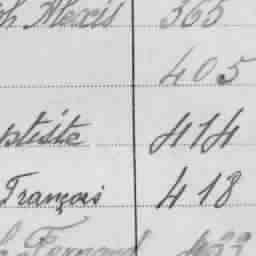 Alexis 365
405
ptiste 414
François 418